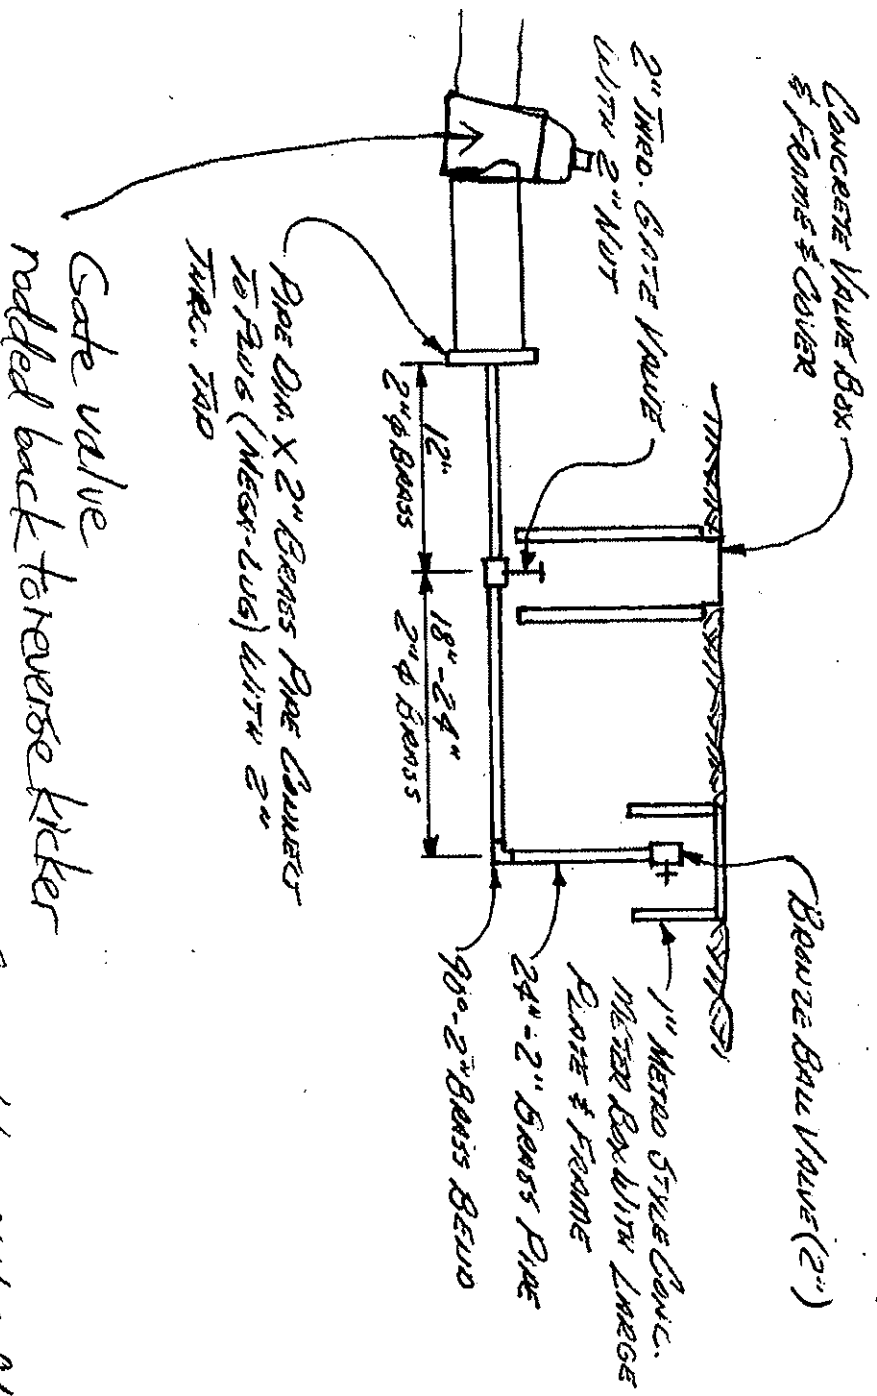 CONCRETE VALVE BOX
& FRAME & COVER
2" THRD. GATE VALVE
WITH 2" NUT
BRONZE BALL VALVE (2")
1" METRO STYLE CONC.
METER BOX WITH LARGE
PLATE & FRAME
24"-2" BRASS PIPE
90°-2" BRASS BEND
12"
2"φ BRASS
18"-24"
2"φ BRASS
PIPE DIA. X 2" BRASS PIPE CONNECT
TO PLUG (MEGA-LUG) WITH 2"
THRD. TAP
Gate valve
rodded back to reverse kicker